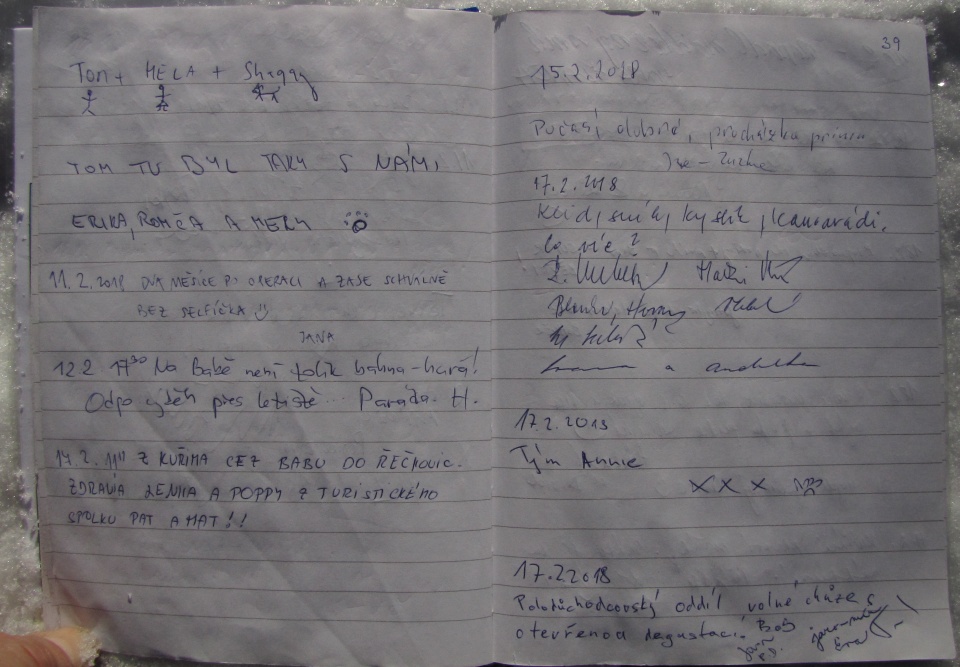 TOM + MELA + Shaggy
TOM TU BYL TAKY S NÁMI
ERIKA, ROMČA A MERY
11.2.2018 DVA MĚSÍCE PO OPERACI A ZASE SCHVÁLNĚ
BEZ SELFÍČKA
JANA
12.2 17³⁰ Na Babě není tolik bahna - hurá!
Odpo výběh přes letiště... Paráda. H.
14.2. Z KUŘIMA CEZ BABU DO ŘEČKOVIC.
ZDRAVIA LENKA A POPPY Z TURISTICKÉHO
SPOLKU PAT A MAT!!
39
15.2.2018
Počasí, procházka prima
17.2.2018
Klid, smích, kyslík, kamarádi.
Co víc?
a
17.2.2018
Tým Annie
XXX
17.2.2018
Polodůchodcovský oddíl volné chůze s
otevřenou degustací. Bob